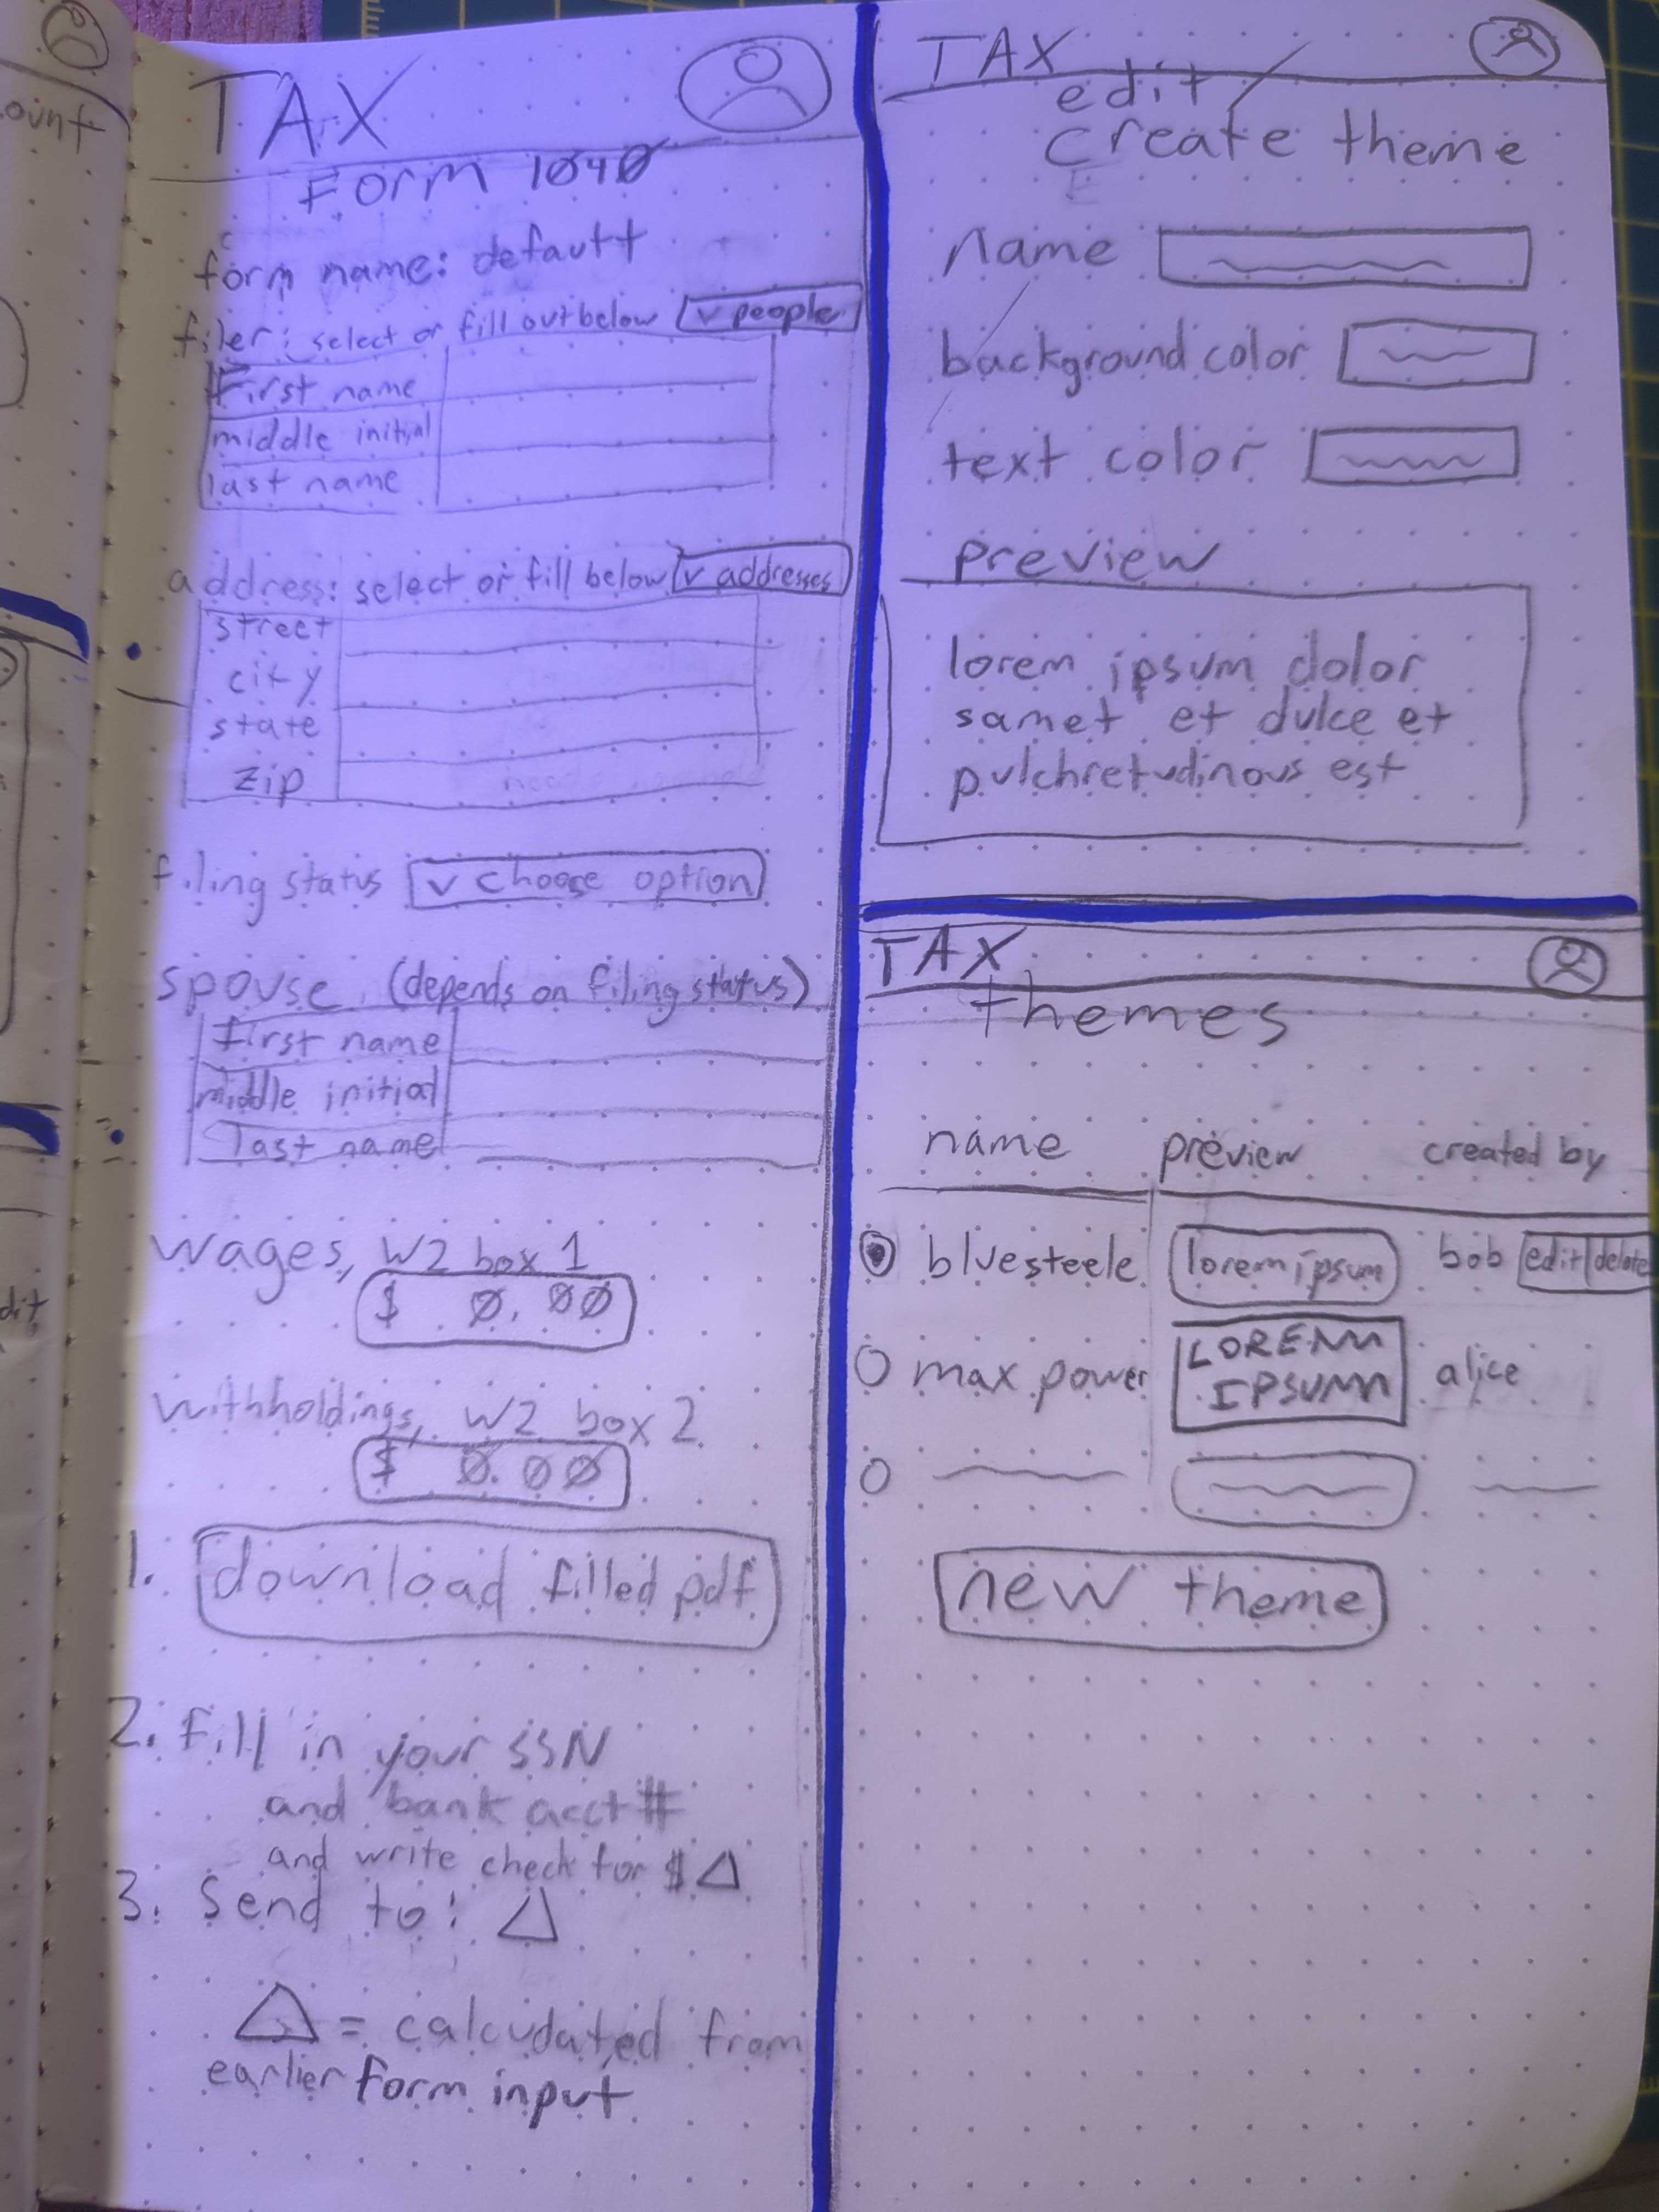 ount
dit
TAX
Form 1040
form name: default
filer: select or fill out below v people
First name
middle initial
last name
address: select or fill below v addresses
street
city
state
zip
filing status v choose option
spouse (depends on filing status)
first name
middle initial
last name
wages, W2 box 1
$ 0.00
withholdings, W2 box 2
$ 0.00
1. download filled pdf
2. fill in your SSN
and bank acct #
and write check for $ △
3. Send to: △
△ = calculated from
earlier form input
TAX
edit /
create theme
name
background color
text color
preview
lorem ipsum dolor
samet et dulce et
pulchretudinous est
TAX
themes
name preview created by
bluesteele lorem ipsum bob edit delete
max power LOREM IPSUM alice
new theme